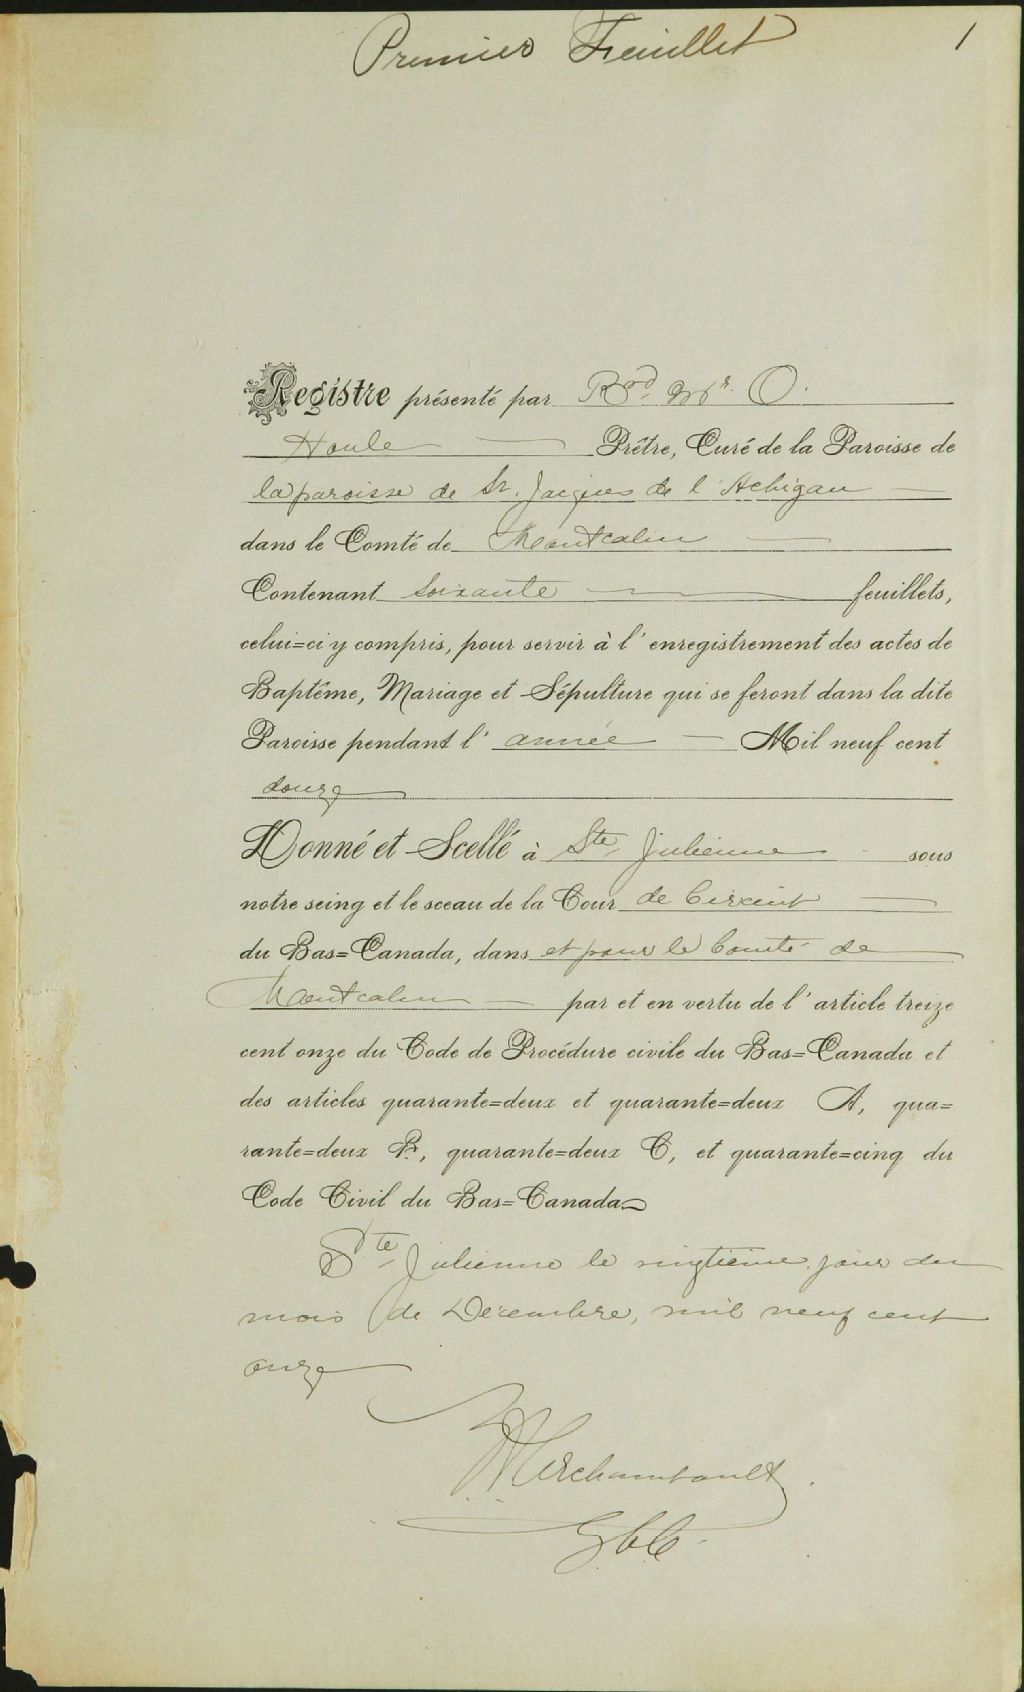 Premier Feuillet
1
Registre présenté par Rvd Mr. O.
Houle Prêtre, Curé de la Paroisse de
la paroisse de St. Jacques de l'Achigan
dans le Comté de Montcalm
Contenant soixante feuillets,
celui=ci y compris, pour servir à l'enregistrement des actes de
Baptême, Mariage et Sépulture qui se feront dans la dite
Paroisse pendant l'année Mil neuf cent
douze
Donné et Scellé à Ste Julienne sous
notre seing et le sceau de la Cour de Circuit
du Bas=Canada, dans et pour le Comté de
Montcalm par et en vertu de l'article treize
cent onze du Code de Procédure civile du Bas=Canada et
des articles quarante=deux et quarante=deux A, qua=
rante=deux B, quarante=deux C, et quarante=cinq du
Code Civil du Bas=Canada
Ste Julienne le vingtième jour du
mois de Décembre, mil neuf cent
onze
Archambault